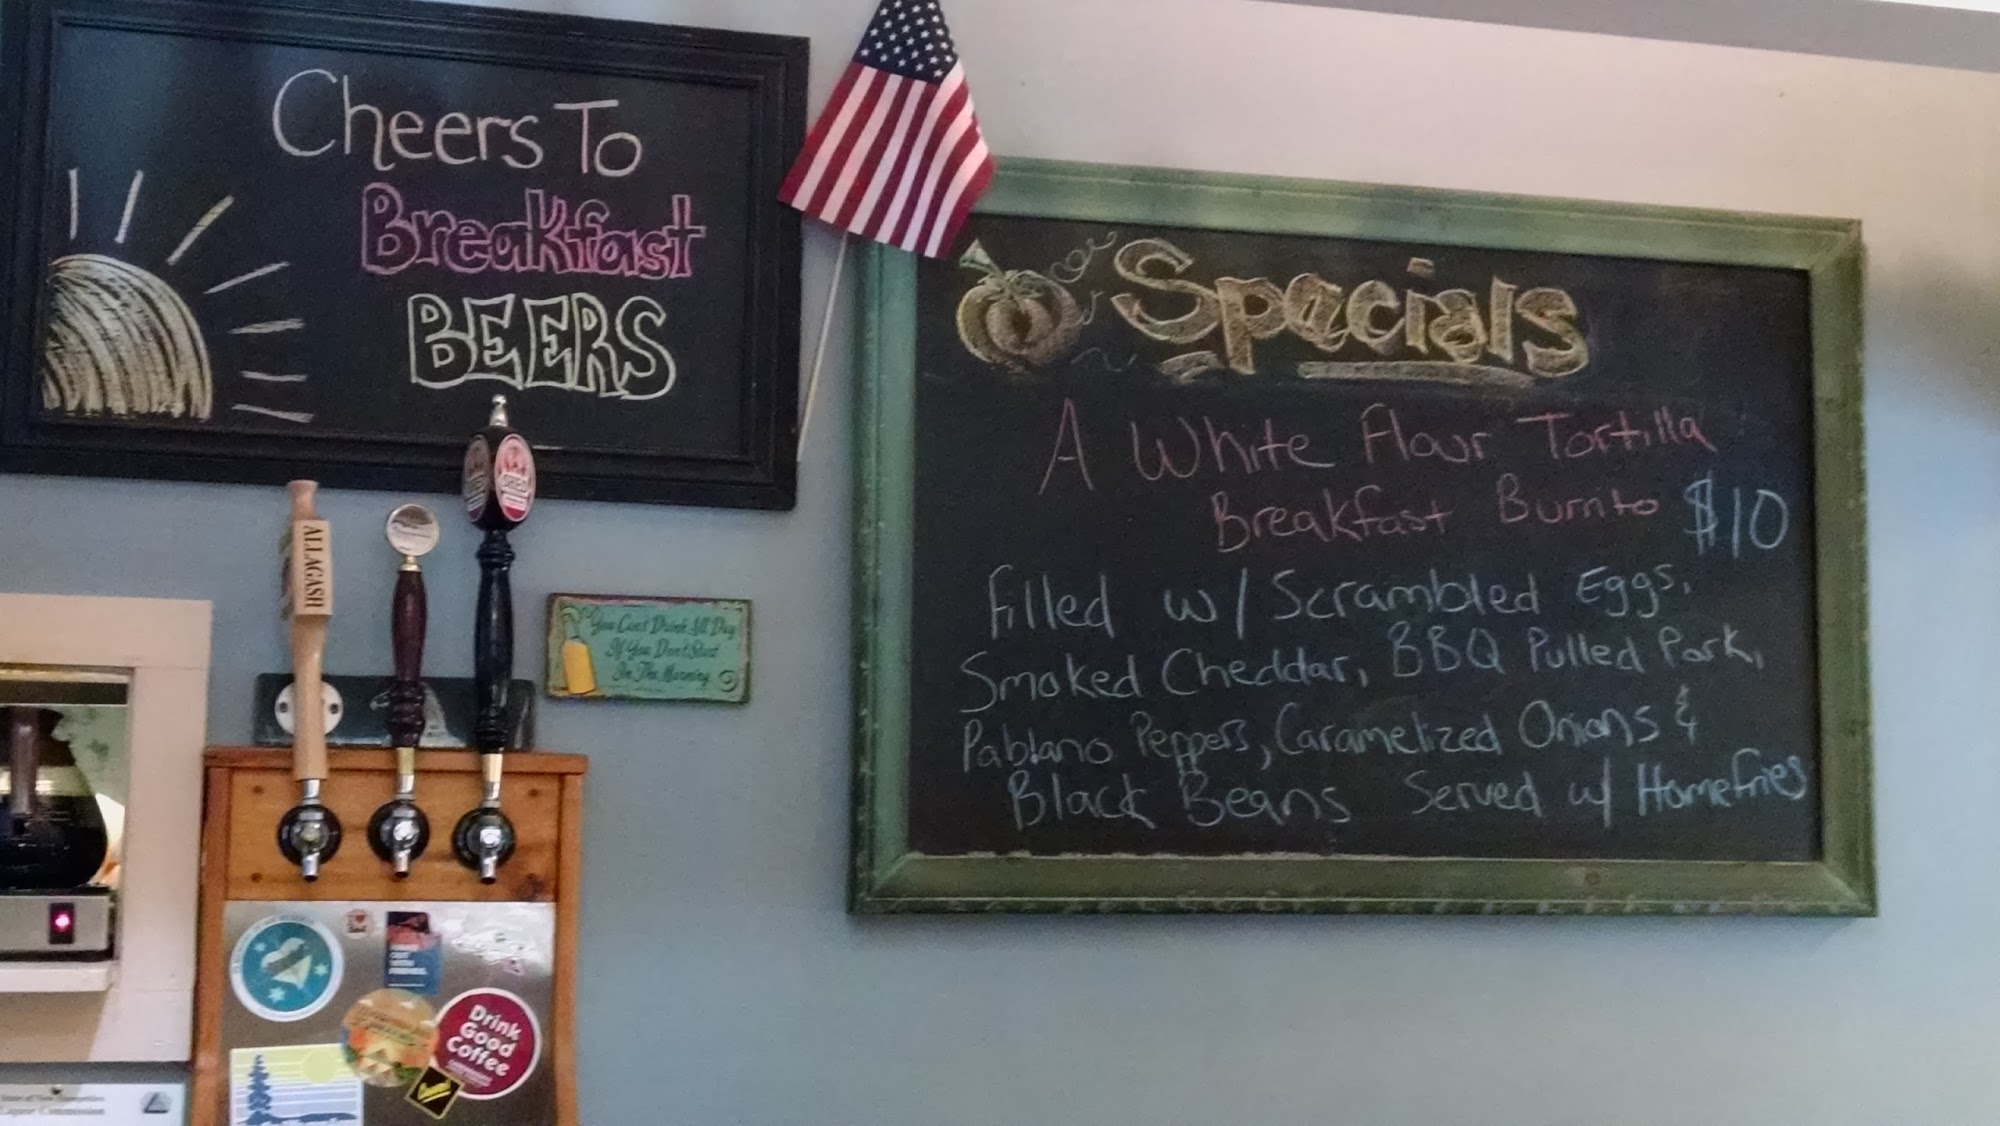 Cheers To
Breakfast
BEERS
Specials
A White Flour Tortilla
Breakfast Burrito $10
Filled w/ Scrambled Eggs,
Smoked Cheddar, BBQ Pulled Pork,
Pablano Peppers, Caramelized Onions &
Black Beans Served w/ Homefries
ALLAGASH
SHED
You Can't Drink All Day
If You Don't Start
In The Morning
Drink
Good
Coffee
State of New Hampshire
Liquor Commission